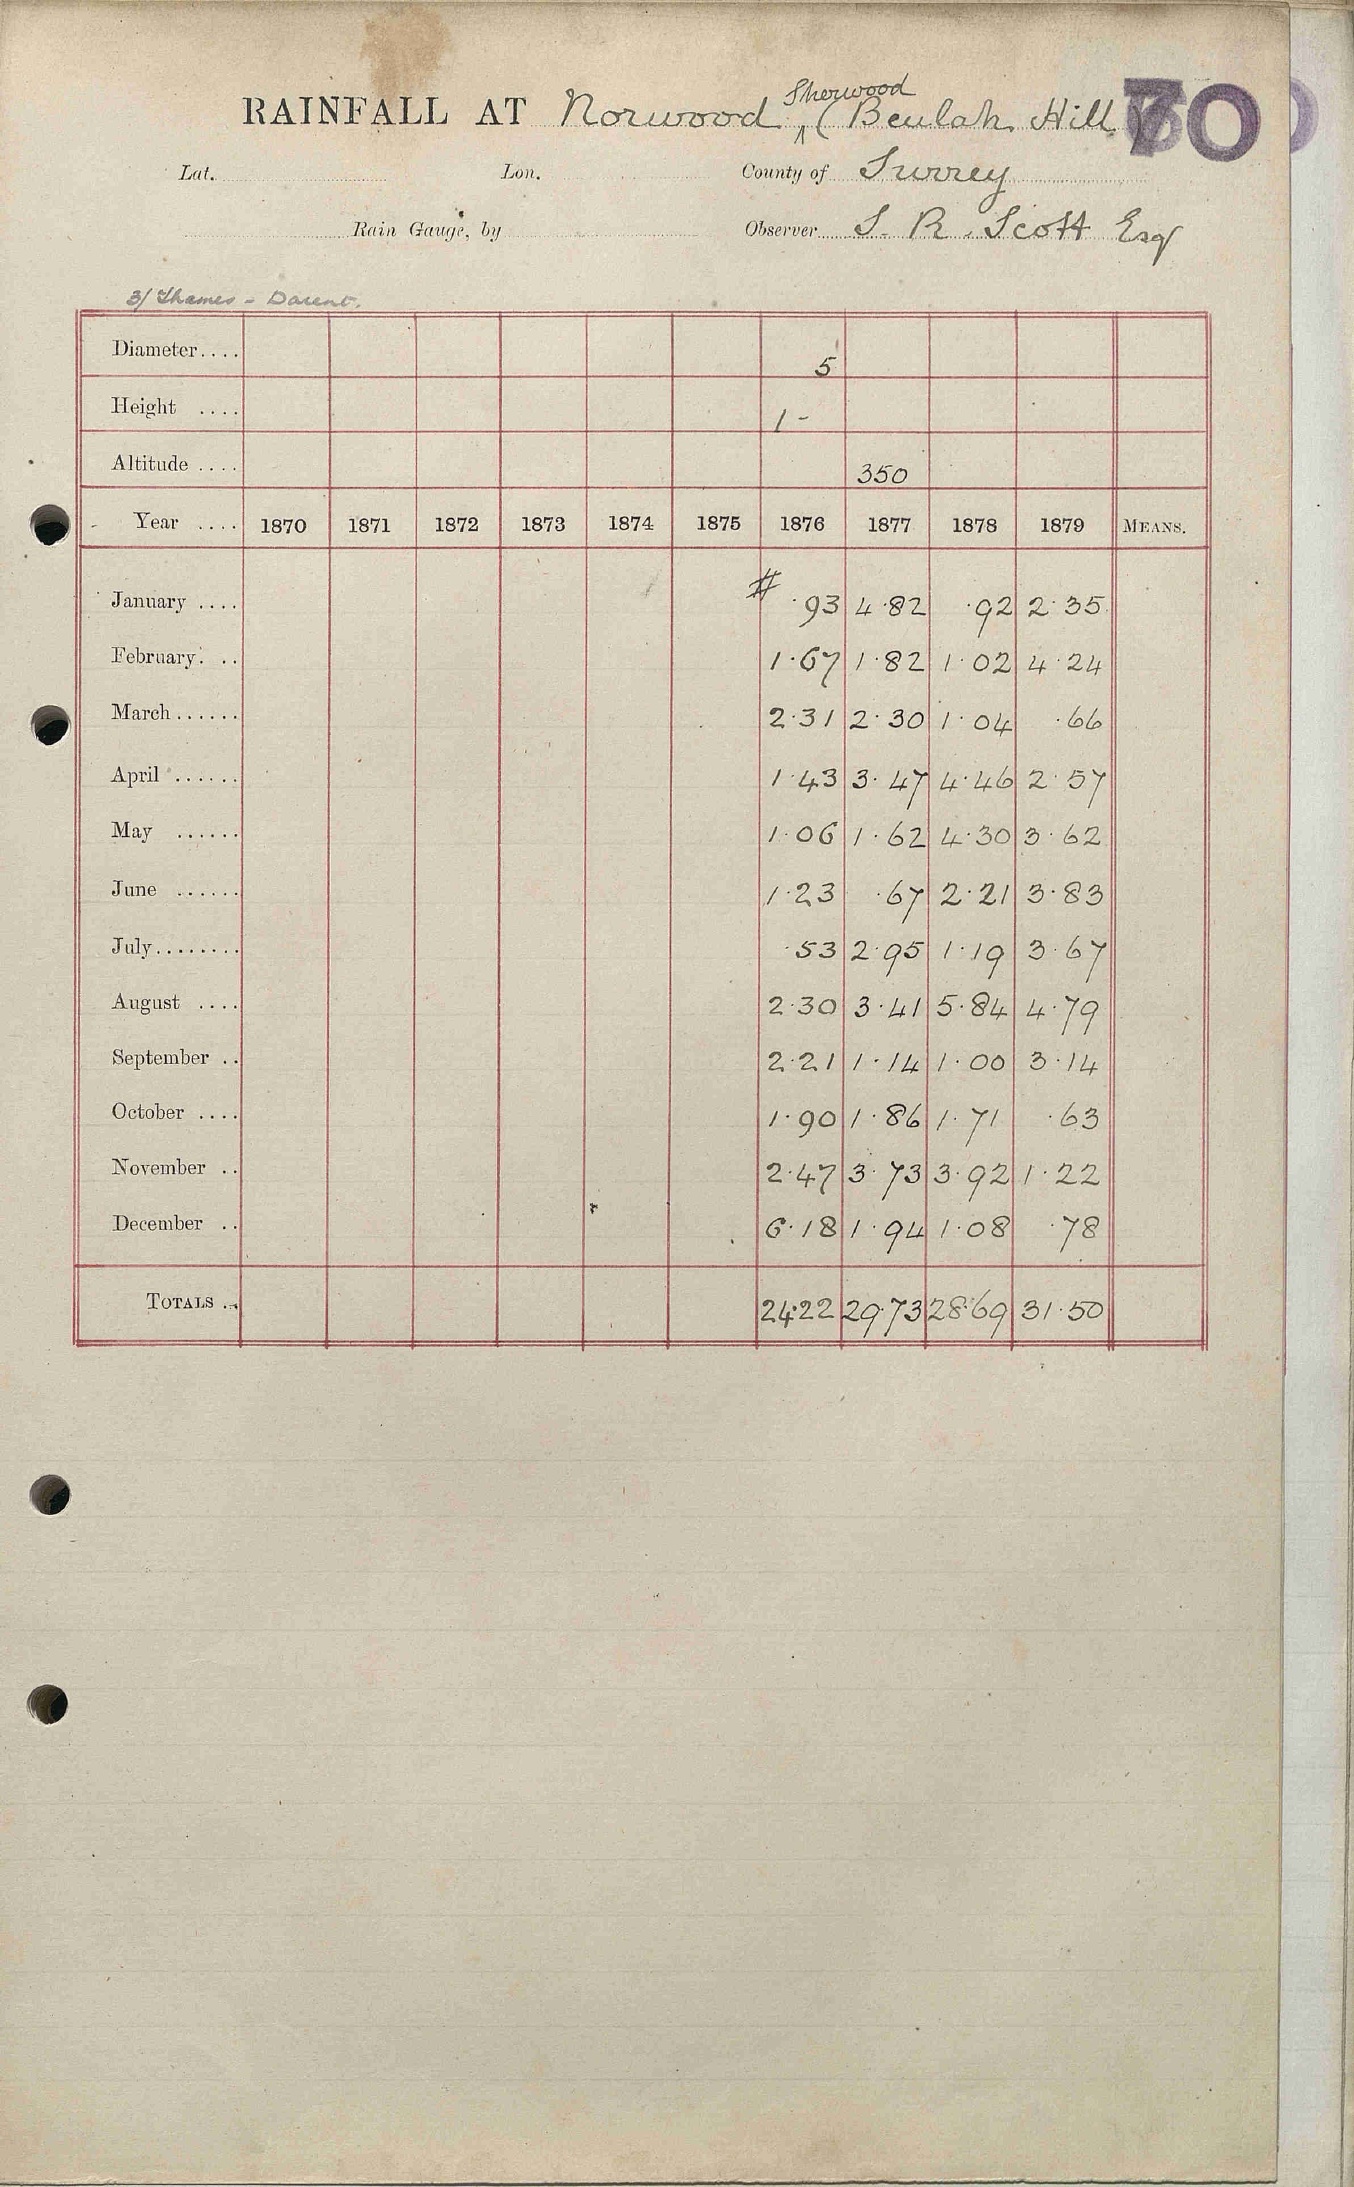 Sherwood
RAINFALL AT Norwood ^ (Beulah Hill) 70
Lat. Lon. County of Surrey
Rain Gauge, by Observer S. R. Scott Esq
3/ Thames - Darent.
Diameter.... 5
Height .... 1 -
Altitude .... 350
Year .... 1870 1871 1872 1873 1874 1875 1876 1877 1878 1879 MEANS.
January .... # ·93 4·82 ·92 2·35
February. .. 1·67 1·82 1·02 4·24
March...... 2·31 2·30 1·04 ·66
April ...... 1·43 3·47 4·46 2·57
May ...... 1·06 1·62 4·30 3·62
June ...... 1·23 ·67 2·21 3·83
July........ ·53 2·95 1·19 3·67
August .... 2·30 3·41 5·84 4·79
September .. 2·21 1·14 1·00 3·14
October .... 1·90 1·86 1·71 ·63
November .. 2·47 3·73 3·92 1·22
December .. 6·18 1·94 1·08 ·78
TOTALS .. 24·22 29·73 28·69 31·50